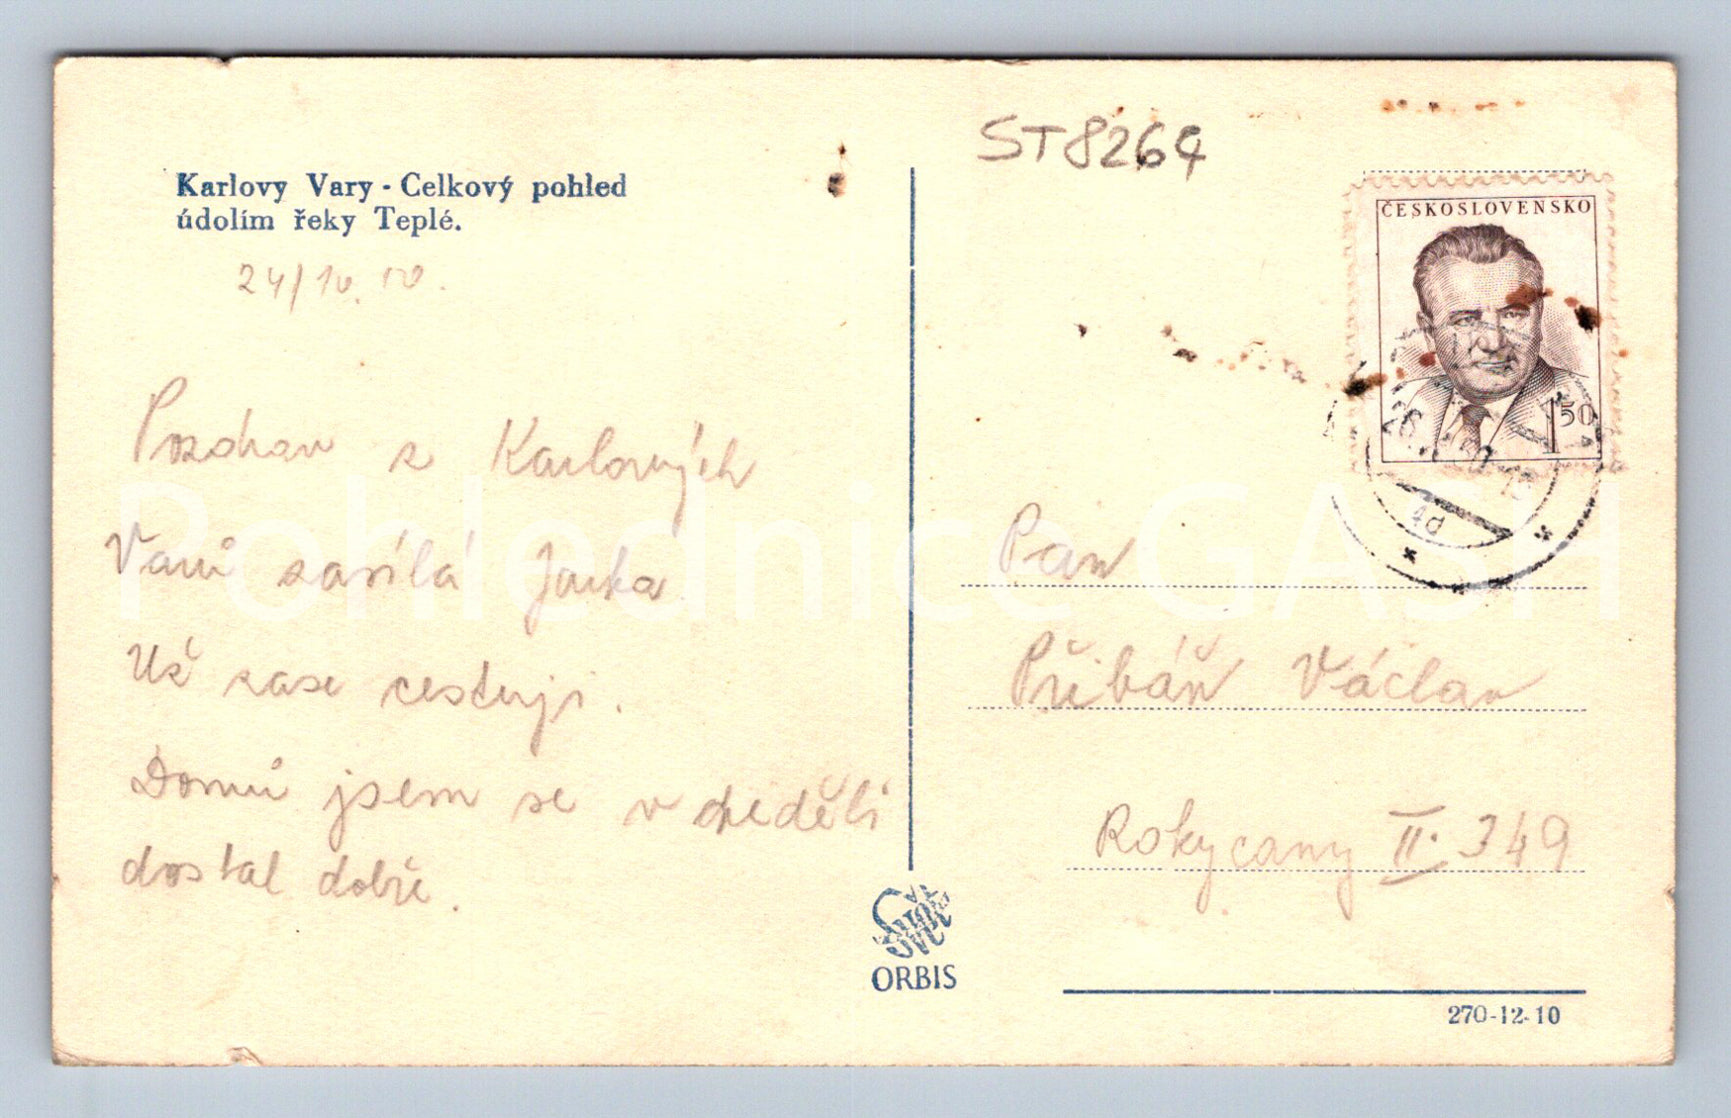 ST8264
Karlovy Vary - Celkový pohled
údolím řeky Teplé.
24/10.
ČESKOSLOVENSKO
1 50
Pozdrav z Karlových
Varů zasílá
Už zase cestuji.
Domů jsem se v neděli
dostal dobře.
Pan
Přibáň Václav
Rokycany II. 349
ORBIS
270-12-10
Pohlednice GASH